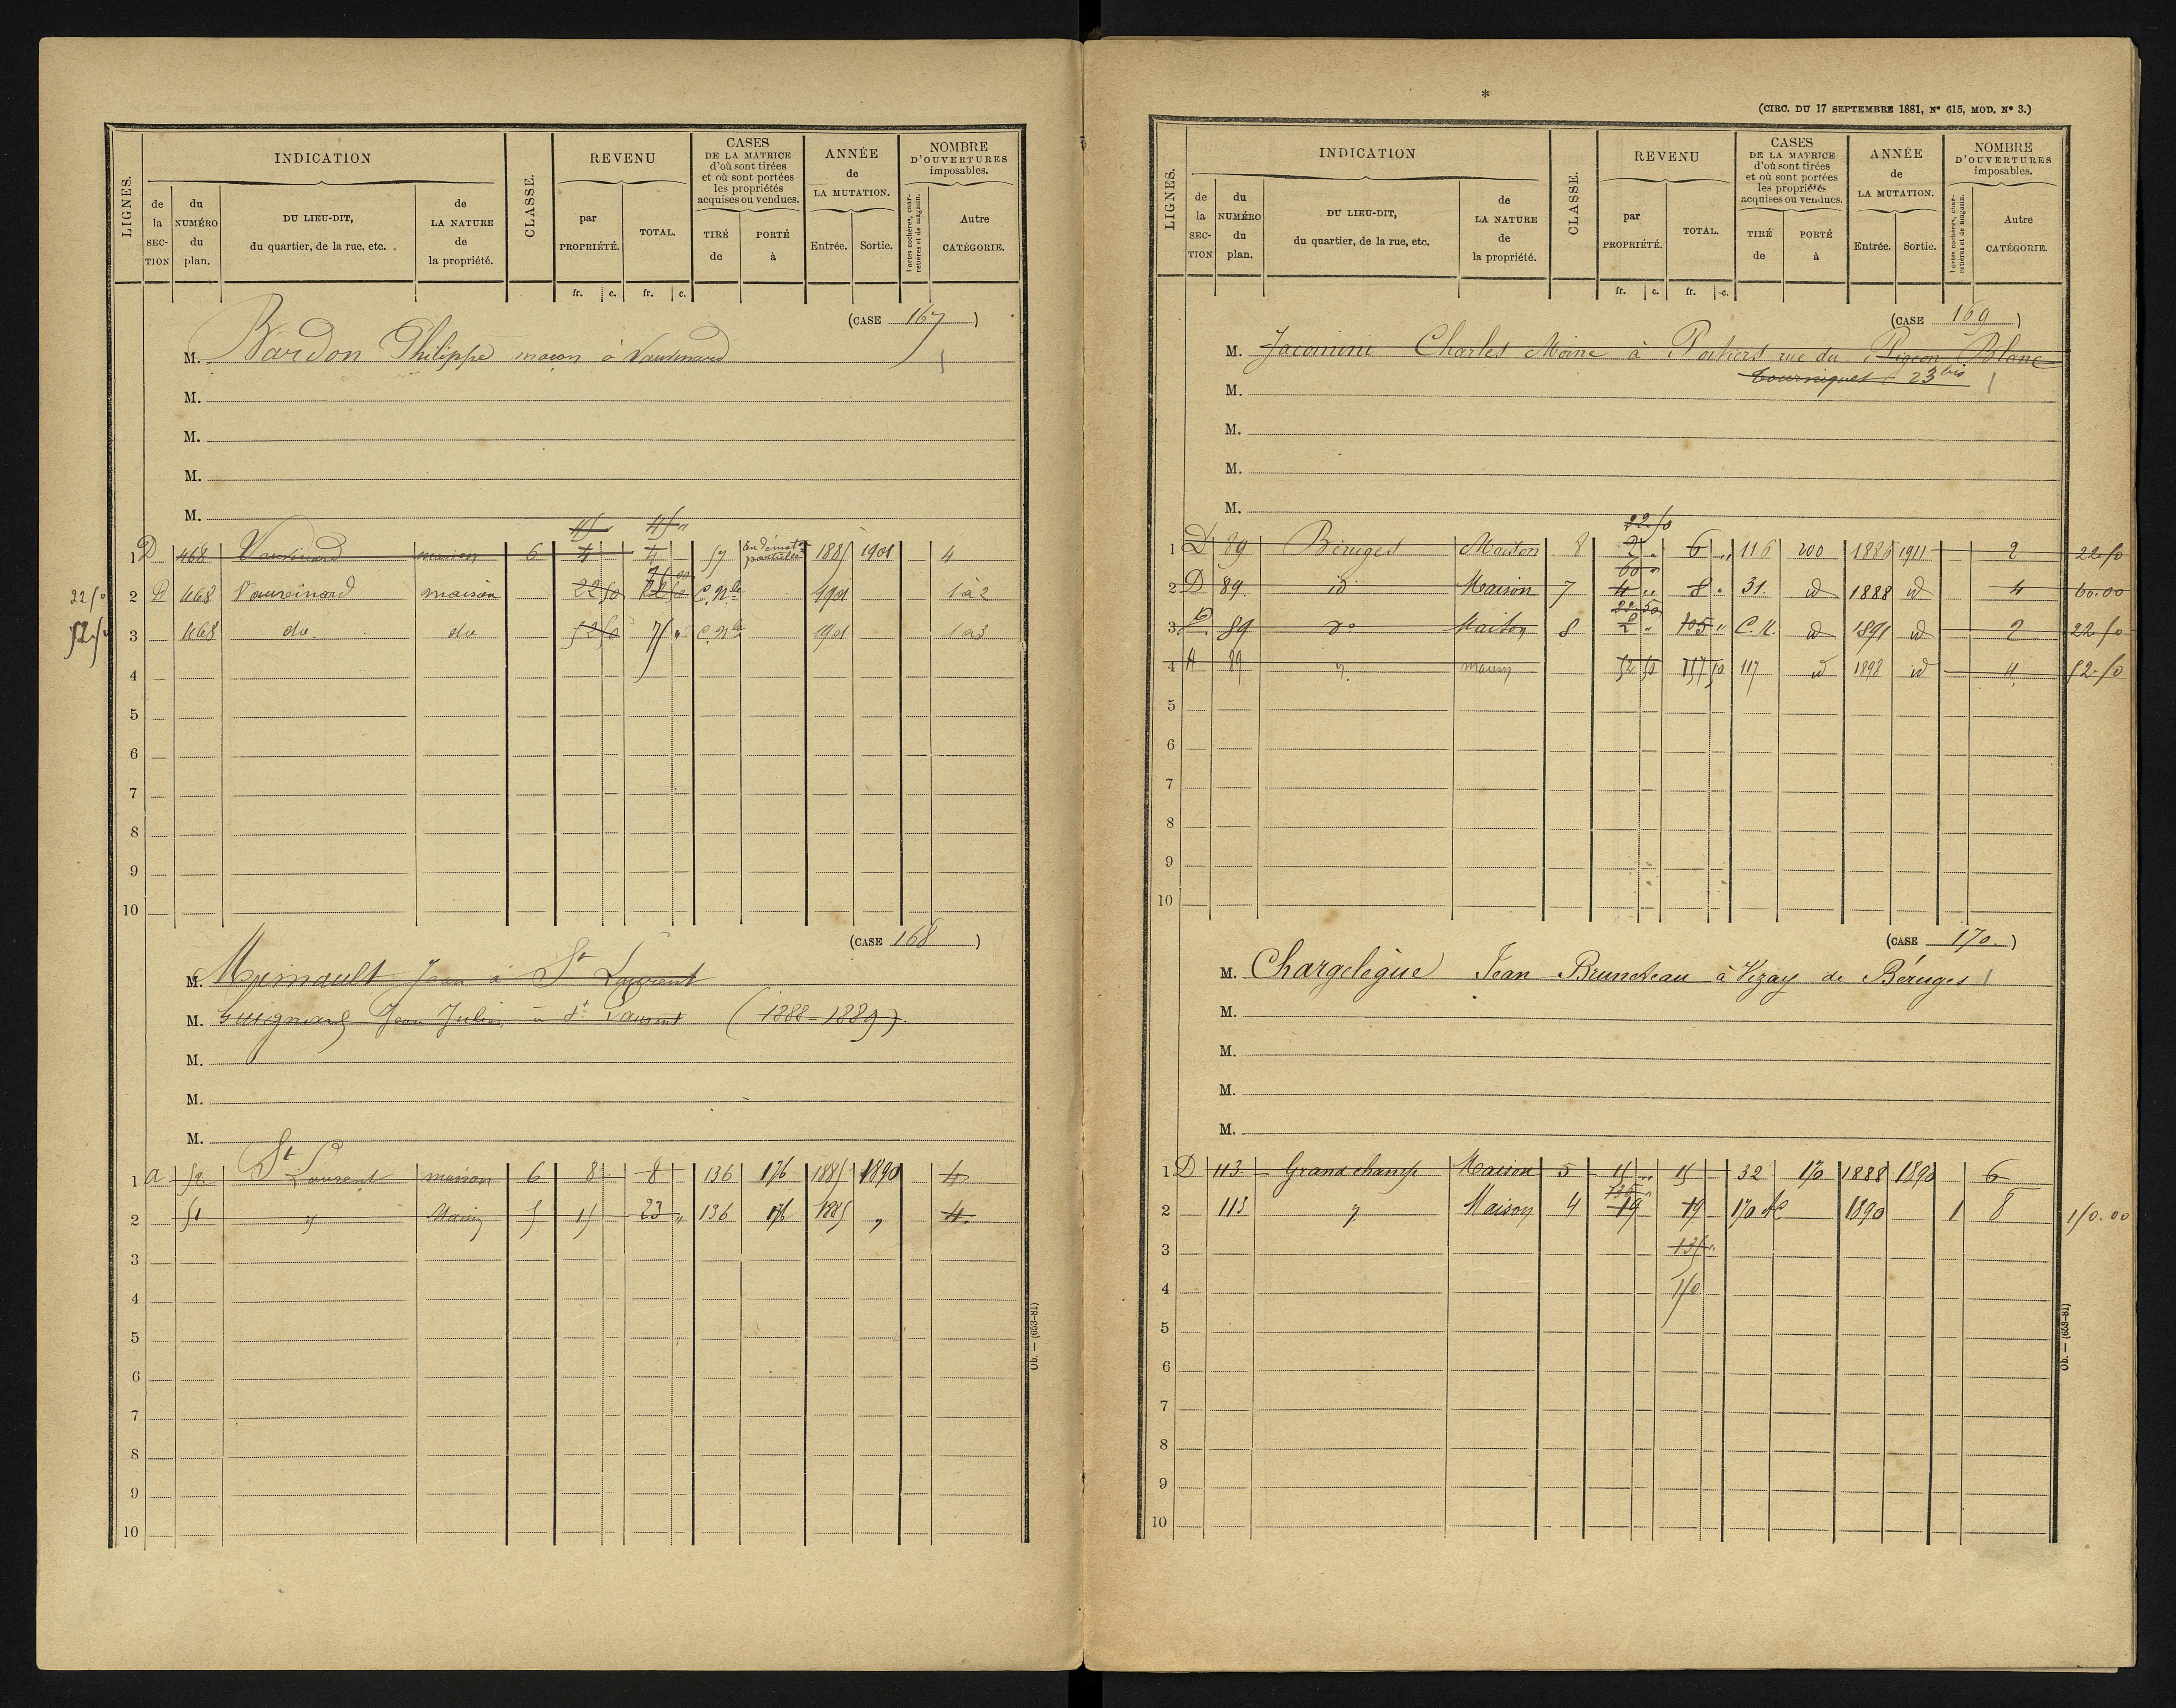 LIGNES.
INDICATION
de la SECTION
du NUMÉRO du plan.
DU LIEU-DIT, du quartier, de la rue, etc.
de LA NATURE de la propriété.
CLASSE.
REVENU
par PROPRIÉTÉ.
TOTAL.
CASES DE LA MATRICE d'où sont tirées et où sont portées les propriétés acquises ou vendues.
TIRÉ de
PORTÉ à
ANNÉE de LA MUTATION.
Entrée.
Sortie.
NOMBRE D'OUVERTURES imposables.
Portes cochères, charretières et de magasin.
Autre CATÉGORIE.
fr. c. fr. c.
(CASE 167)
M. Bardon Philippe maçon à
M.
M.
M.
M.
45 " 45 "
1 D 468 maison 6 4 4 57 1885 1901 4
75 00
22 50 2 D 468 maison 22 50 22 50 C. Nle 1901 1 à 2
52.50 3 468 do. do 52 50 75 " C. Nle 1901 1 à 3
4
5
6
7
8
9
10
(CASE 168)
M. Jean à St Laurent
M. Guignard Jean Julien à St Laurent (1888-1889).
M.
M.
M.
1 a 52 St Laurent maison 6 8 8 136 176 1885 1890 4
2 51 " Maison 5 15 23 " 136 176 1885 " 4.
3
4
5
6
7
8
9
10
Ob. — (653-81)
*
(CIRC. DU 17 SEPTEMBRE 1881, No 615, MOD. No 3.)
LIGNES.
INDICATION
de la SECTION
du NUMÉRO du plan.
DU LIEU-DIT, du quartier, de la rue, etc.
de LA NATURE de la propriété.
CLASSE.
REVENU
par PROPRIÉTÉ.
TOTAL.
CASES DE LA MATRICE d'où sont tirées et où sont portées les propriétés acquises ou vendues.
TIRÉ de
PORTÉ à
ANNÉE de LA MUTATION.
Entrée.
Sortie.
NOMBRE D'OUVERTURES imposables.
Portes cochères, charretières et de magasin.
Autre CATÉGORIE.
fr. c. fr. c.
(CASE 169)
M. Jacomini Charles Moine à Poitiers rue du Pigeon Blanc
tourniquet 23 bis
M.
M.
M.
M.
22.50
1 D 89 Béruges Maison 8 2 " 6 " 116 200 1886 1911 2 22.50
60 "
2 D 89. id Maison 7 4 " 8 " 31. id 1888 id 4 60.00
22.50
3 D. 89 do Maison 8 2 " 105 " C. N. id 1891 id 2 22.50
4 A 89 " maison 52 50 157 50 117 id 1898 id 4 52.50
5
6
7
8
9
10
(CASE 170.)
M. Chargelègue Jean Bruneteau à Vezay de Béruges
M.
M.
M.
M.
1 D 113 Grand champ Maison 5 15 " 15 32 170 1888 1890 6
135 "
2 113 " Maison 4 19 19 170 1890 1 8 150.00
3 135 "
4 150
5
6
7
8
9
10
Ob. — (653-81)